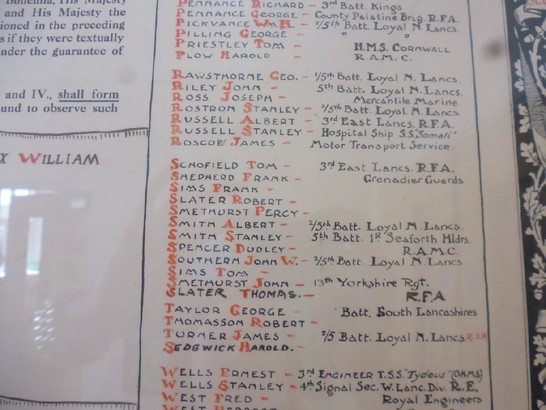 Bohemia, His Majesty
and His Majesty the
ioned in the preceding
s if they were textually
nder the guarantee of
and IV., shall form
und to observe such
X WILLIAM
PENNANCE RICHARD - 3rd Batt. Kings
PENNANCE GEORGE - County Palatine Brig. R.F.A.
PICKVANCE Wm H. - 2/5th Batt. Loyal N. Lancs.
PILLING GEORGE - " "
PRIESTLEY TOM - H.M.S. CORNWALL
PLOW HAROLD - R.A.M.C.
RAWSTHORNE GEO. - 1/5th Batt. Loyal N. Lancs.
RILEY JOHN - 5th Batt. Loyal N. Lancs.
ROSS JOSEPH - Mercantile Marine
ROSTRON STANLEY - 2/5th Batt. Loyal N. Lancs.
RUSSELL ALBERT - 3rd East Lancs. R.F.A.
RUSSELL STANLEY - Hospital Ship S.S. "Somali"
ROSCOE JAMES - Motor Transport Service
SCHOFIELD TOM - 3rd East Lancs. R.F.A.
SHEPHERD FRANK - Grenadier Guards
SIMS FRANK -
SLATER ROBERT -
SMETHURST PERCY -
SMITH ALBERT - 2/5th Batt. Loyal N. Lancs.
SMITH STANLEY - 5th Batt. 1st Seaforth Hldrs.
SPENCER DUDLEY - R.A.M.C.
SOUTHERN JOHN W. - 2/5th Batt. Loyal N. Lancs
SIMS TOM -
SMETHURST JOHN - 13th Yorkshire Rgt.
SLATER THOMAS. - R.F.A
TAYLOR GEORGE - Batt. South Lancashires
THOMASSON ROBERT -
TURNER JAMES - 2/5 Batt. Loyal N. Lancs.
SEDGWICK HAROLD. -
WELLS ERNEST - 3rd ENGINEER T.S.S. "Tydeus" (O.H.M.S)
WELLS STANLEY - 4th Signal Sec. W. Lanc. Div. R.E.
WEST FRED - Royal Engineers
WEST